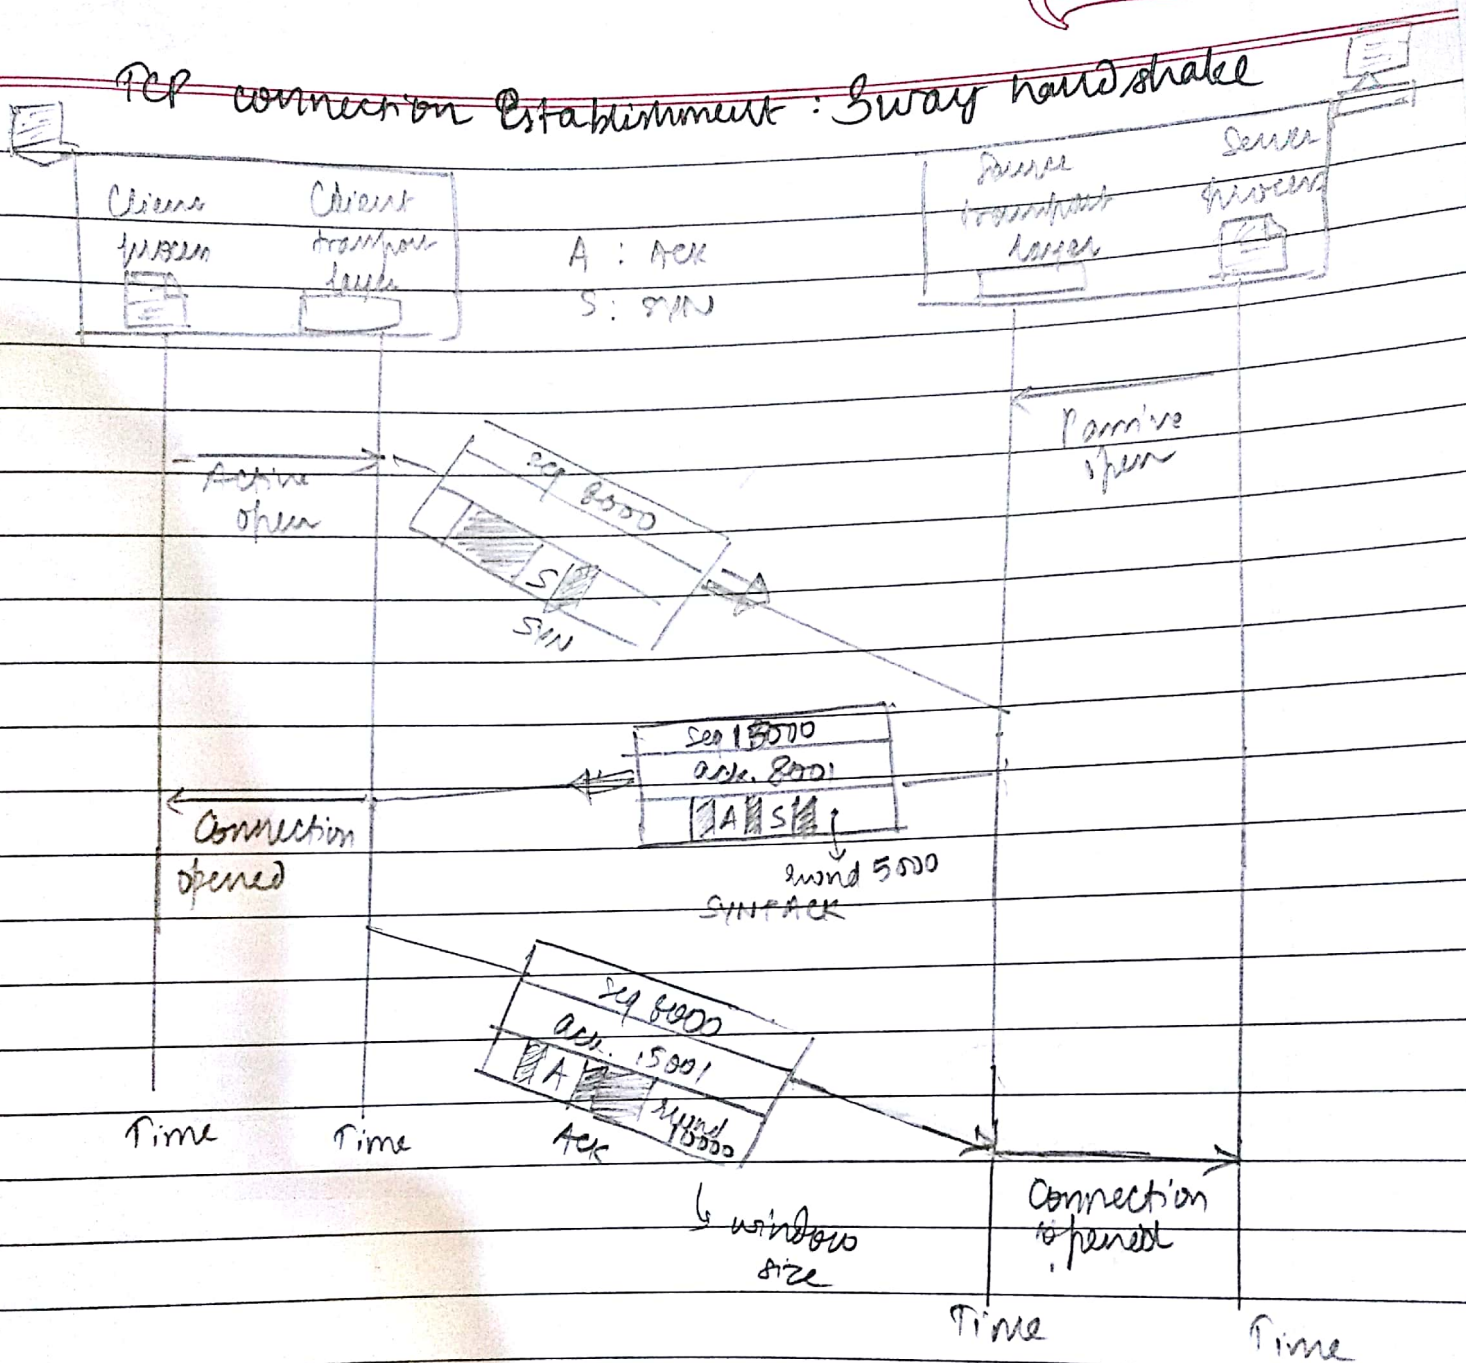 TCP connection Establishment : 3way handshake
Client process
Client transport layer
A : ACK
S : SYN
Source transport layer
Server process
Passive open
Active open
seq 8000
S
SYN
seq 15000
ack. 8001
A S
rwnd 5000
SYN+ACK
Connection opened
seq 8000
ack. 15001
A
rwnd 10000
ACK
window size
Connection opened
Time
Time
Time
Time